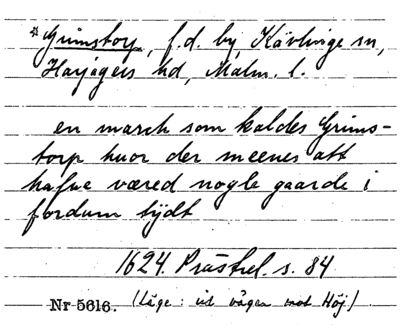 *Grimstorp, f.d. by, Kävlinge sn,
Harjagers hd, Malm. l.
en march som kaldes Grims-
torp huor der meenes att
hafue væred nogle gaarde i
fordum tijdt
1624. Prästrel. s. 84
Nr 5616. (Läge: vid vägen mot Hög.)